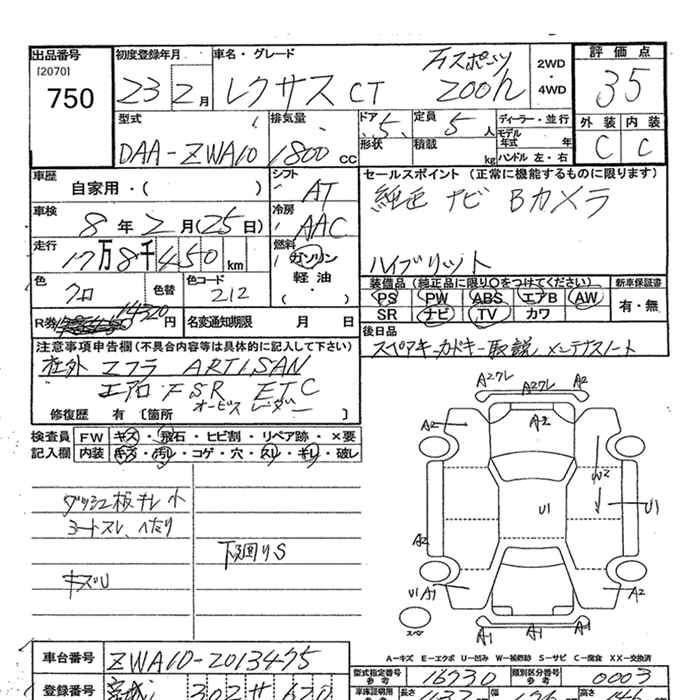 出品番号
[2070]
750
初度登録年月
23 2月
車名・グレード
Fスポーツ
レクサス CT 200h
2WD
・
4WD
評価点
35
外装 内装
C C
型式
DAA-ZWA10
排気量
1800 cc
ドア 5
形状
定員 5 人
積載 kg
ディーラー・並行
モデル
年式 年
ハンドル 左・右
車歴
自家用・( )
シフト
AT
車検
8年 2月 (25日)
冷房
AAC
走行
17万8千450 km
燃料
ガソリン
軽油
・
( )
色
クロ
色替
色コード
212
R券 14320円
名変通知期限 月 日
セールスポイント (正常に機能するものに限ります)
純正 ナビ Bカメラ
ハイブリット
装備品 (純正品に限り○をつけてください)
PS PW ABS エアB AW
SR ナビ TV カワ
新車保証書
有・無
後日品
スペアキー カードキー 取説 メンテナスノート
注意事項申告欄 (不具合内容等は具体的に記入して下さい)
社外 マフラ ARTISAN
エアロ F S R ETC
オービス レーダー
修復歴 有 [箇所 ]
検査員 FW キズ・飛石・ヒビ割・リペア跡・×要
記入欄 内装 キズ・汚レ・コゲ・穴・スレ・キレ・破レ
ダッシュ板キレ小
シートスレ、ヘタリ
下回りS
キズU
A2クレ A2クレ A2
A2 A2
W2
U1 U1
A2
U1 A1 A2
スペア
A1 A1 A1
A−キズ E−エクボ U−凹み W−補修跡 S−サビ C−腐食 XX−交換済
車台番号
ZWA10-2013475
登録番号
宮城 302 サ 620
型式指定番号
参考
16230
類別区分番号
参考
0003
車庫証明用
長さ 幅 高さ